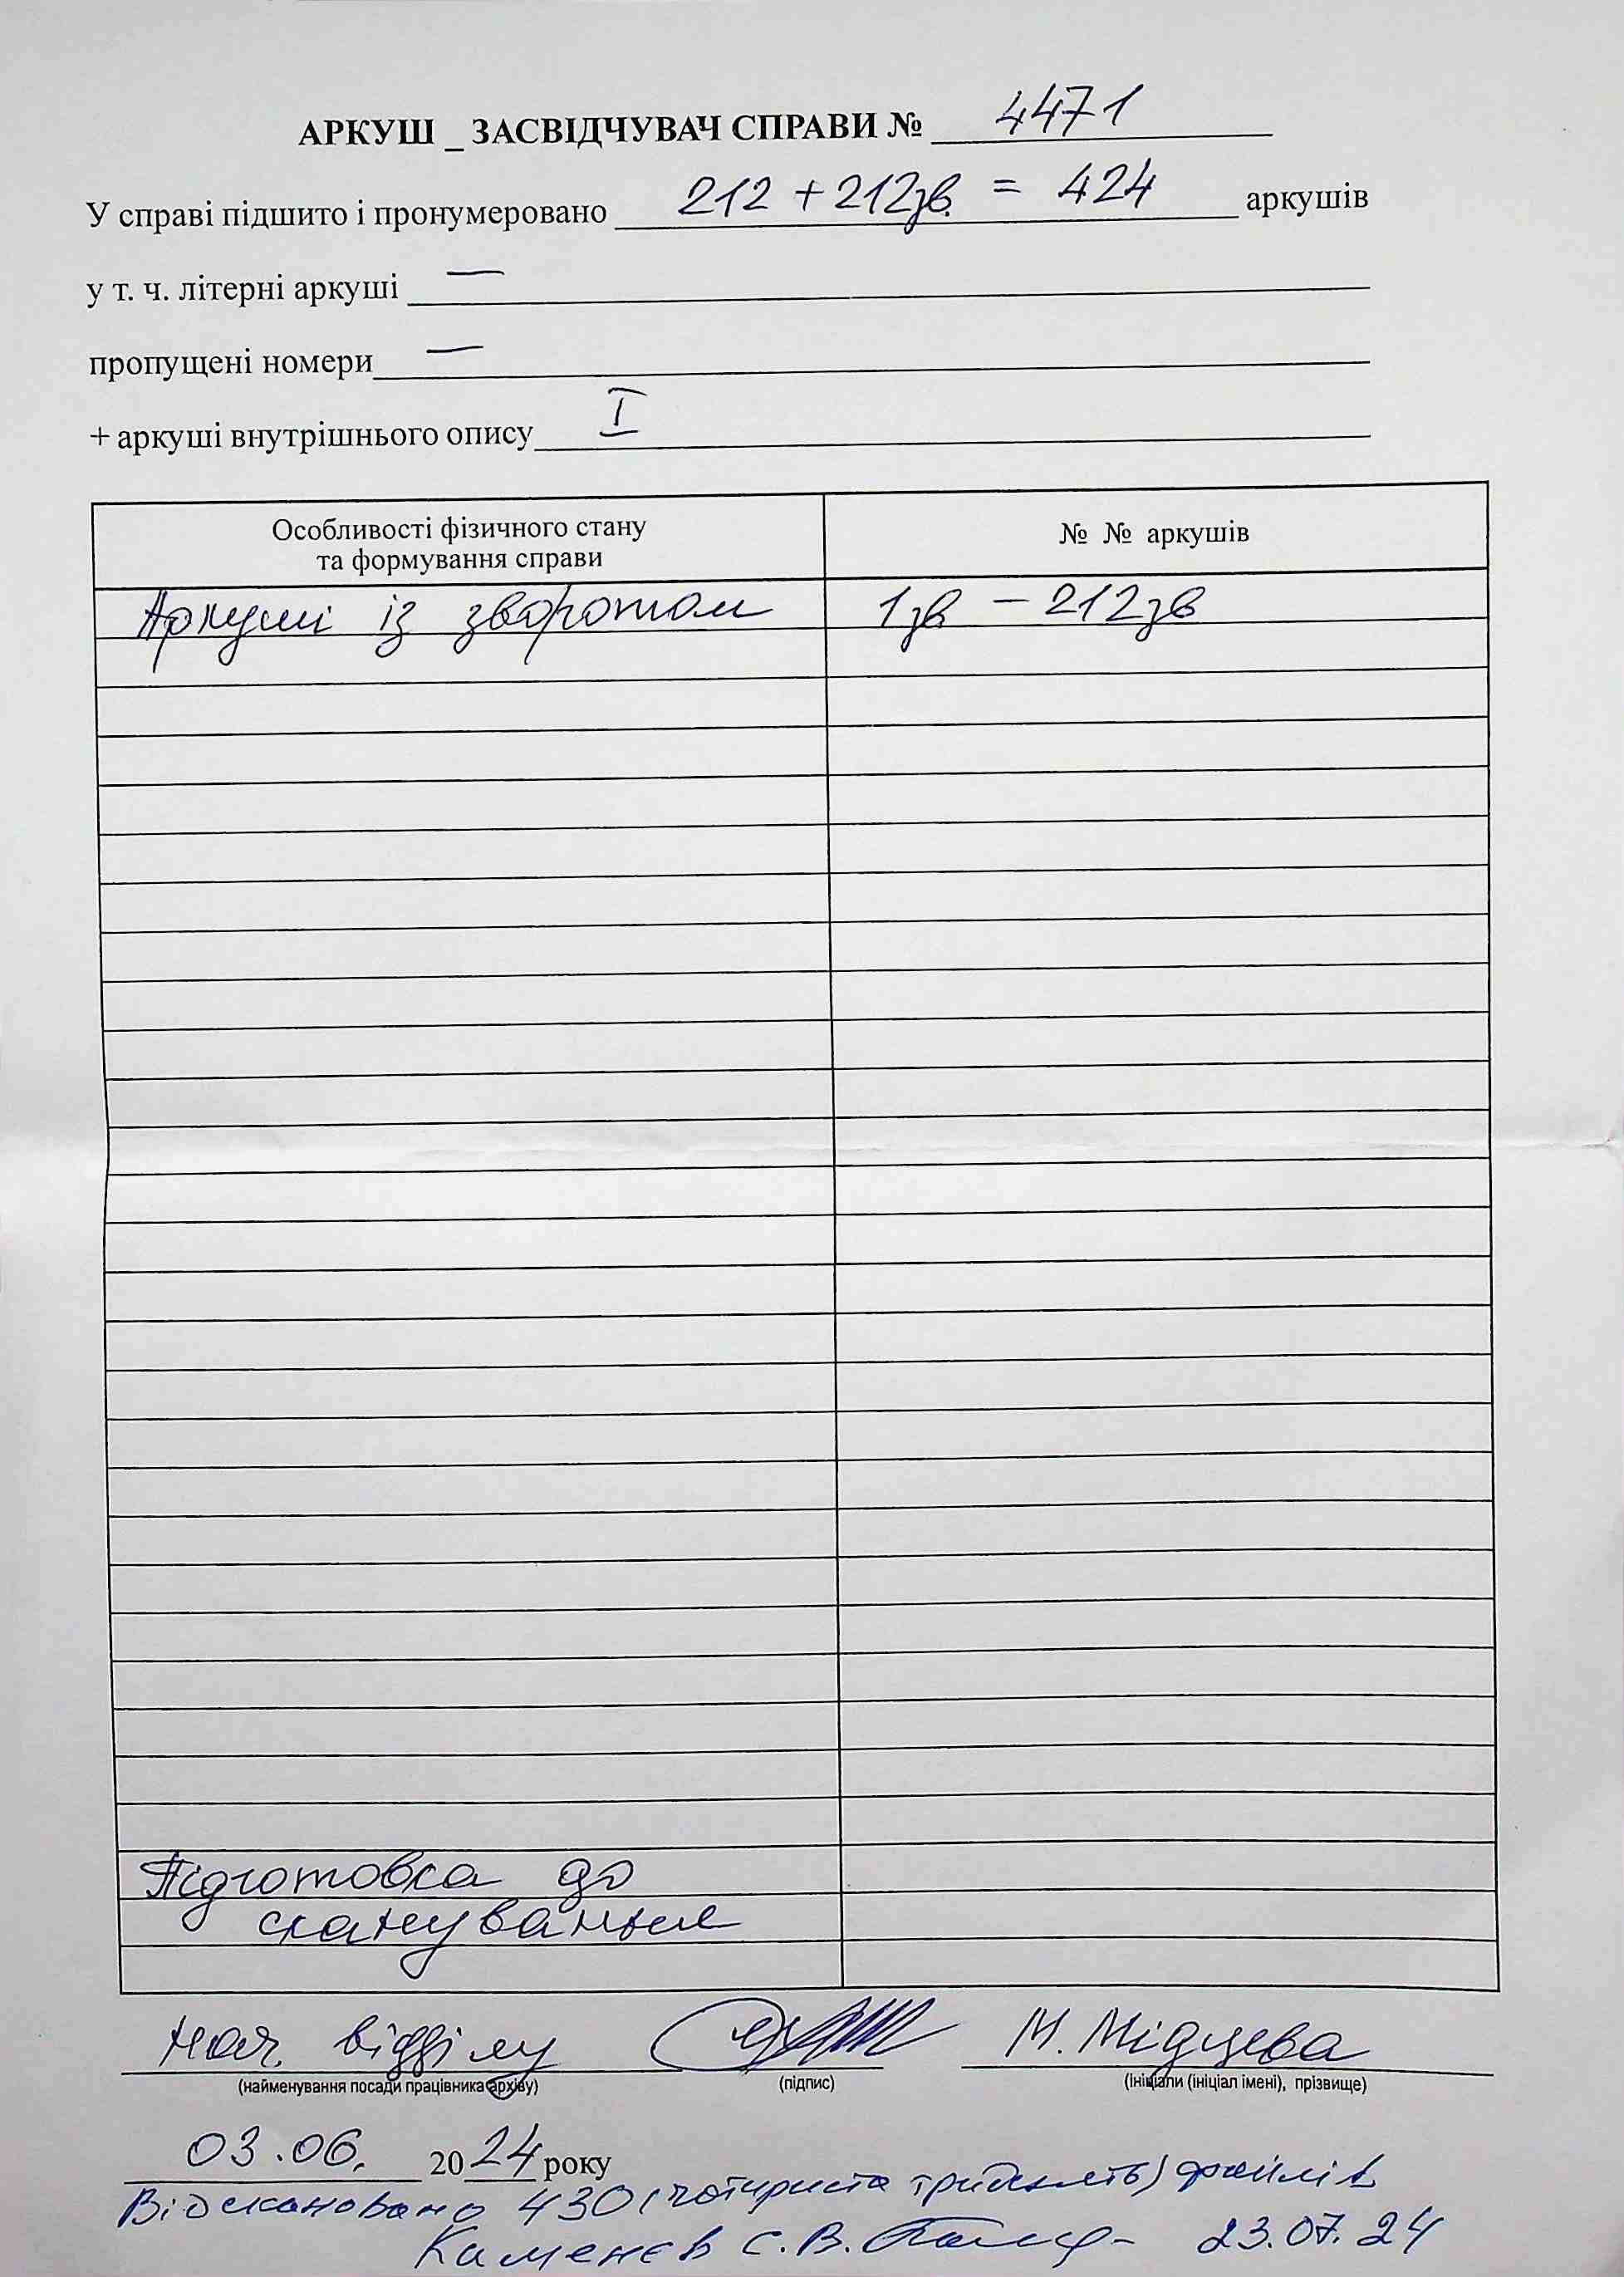 АРКУШ _ ЗАСВІДЧУВАЧ СПРАВИ № 4471
У справі підшито і пронумеровано 212 + 212зв. = 424 аркушів
у т. ч. літерні аркуші —
пропущені номери —
+ аркуші внутрішнього опису I
Особливості фізичного стану
та формування справи
№ № аркушів
Аркуші із зворотом 1зв – 212зв
Підготовка до
сканування
Нач. відділу М. Мідцева
(найменування посади працівника архіву) (підпис) (ініціали (ініціал імені), прізвище)
03.06. 2024 року
Відскановано 430 (чотириста тридцять) файлів
Каменєв С.В. 23.07.24